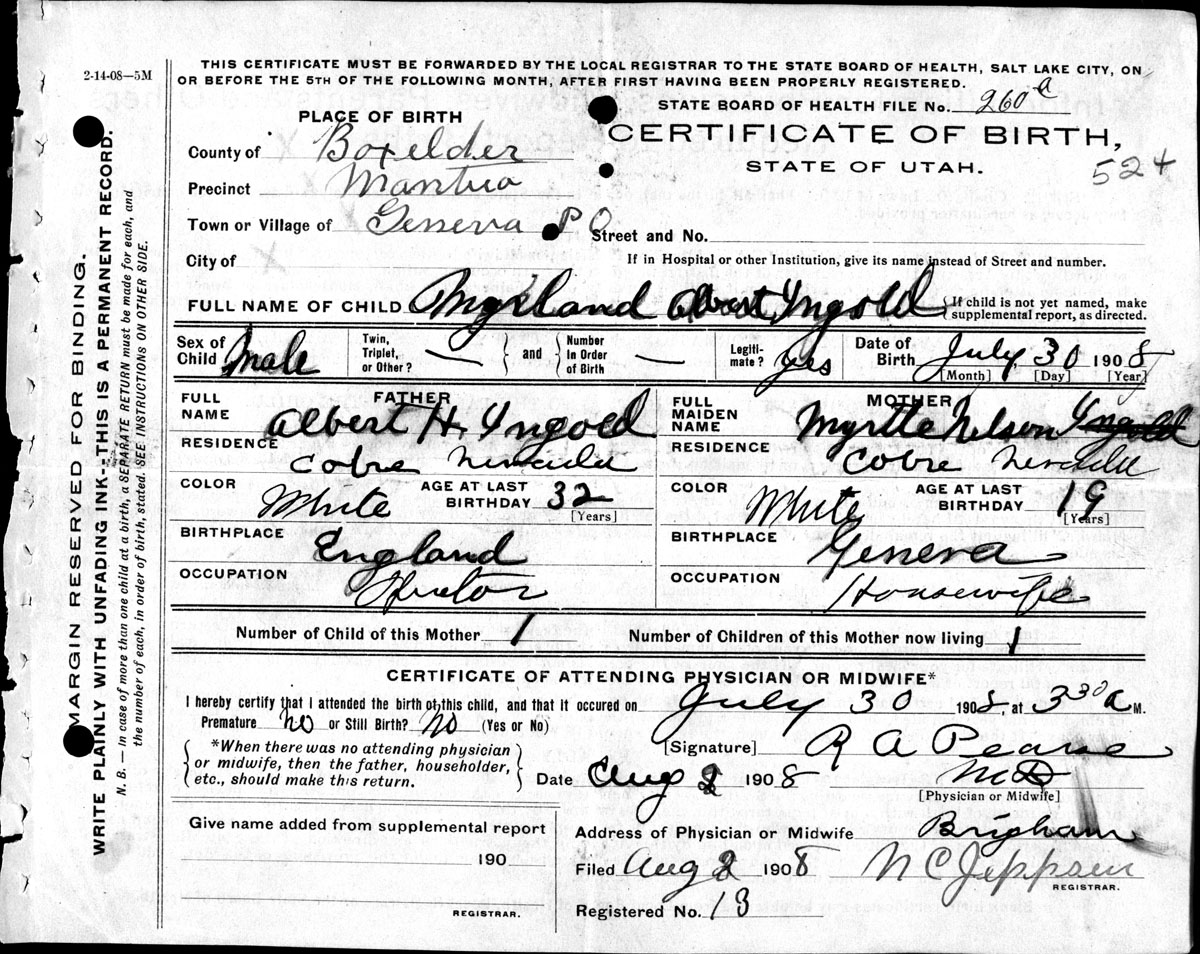 2-14-08—5M
THIS CERTIFICATE MUST BE FORWARDED BY THE LOCAL REGISTRAR TO THE STATE BOARD OF HEALTH, SALT LAKE CITY, ON
OR BEFORE THE 5TH OF THE FOLLOWING MONTH, AFTER FIRST HAVING BEEN PROPERLY REGISTERED.
STATE BOARD OF HEALTH FILE No. 260 a
PLACE OF BIRTH
CERTIFICATE OF BIRTH,
STATE OF UTAH.
524
County of Boxelder
Precinct Mantua
Town or Village of Geneva P O Street and No.
City of If in Hospital or other Institution, give its name instead of Street and number.
FULL NAME OF CHILD Myrland Albert Yngold {If child is not yet named, make
supplemental report, as directed.
Sex of Child Male Twin, Triplet, or Other? — } and { Number In Order of Birth — Legiti-mate? yes Date of Birth July 30 1908
[Month] [Day] [Year]
FATHER
FULL NAME Albert H. Yngold
RESIDENCE Cobre Nevada
COLOR White AGE AT LAST BIRTHDAY 32
[Years]
BIRTHPLACE England
OCCUPATION
MOTHER
FULL MAIDEN NAME Myrtle Nelson Yngold
RESIDENCE Cobre Nevada
COLOR White AGE AT LAST BIRTHDAY 19
[Years]
BIRTHPLACE Geneva
OCCUPATION Housewife
Number of Child of this Mother 1 Number of Children of this Mother now living 1
CERTIFICATE OF ATTENDING PHYSICIAN OR MIDWIFE*
I hereby certify that I attended the birth of this child, and that it occured on July 30 1908, at 3 30 a M.
Premature No or Still Birth? No (Yes or No)
{*When there was no attending physician
or midwife, then the father, householder,
etc., should make this return.}
[Signature] R A Pearse
Date Aug 2 1908 MD
[Physician or Midwife]
Give name added from supplemental report
190
REGISTRAR.
Address of Physician or Midwife Brigham
Filed Aug 2 1908 N C Jeppsen
REGISTRAR.
Registered No. 13
MARGIN RESERVED FOR BINDING.
WRITE PLAINLY WITH UNFADING INK—THIS IS A PERMANENT RECORD.
N. B. — In case of more than one child at a birth, a SEPARATE RETURN must be made for each, and
the number of each, in order of birth, stated. SEE INSTRUCTIONS ON OTHER SIDE.